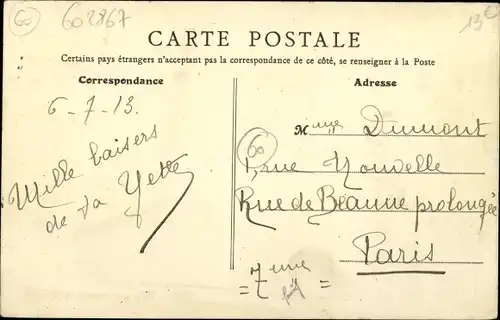 60
602867
13€
CARTE POSTALE
Certains pays étrangers n'acceptant pas la correspondance de ce côté, se renseigner à la Poste
Correspondance
Adresse
6-7-13.
Mille baisers
de ta Yette
Mme Dumont
60
rue Nouvelle
Rue de Beaune prolongée
Paris
= 7eme =